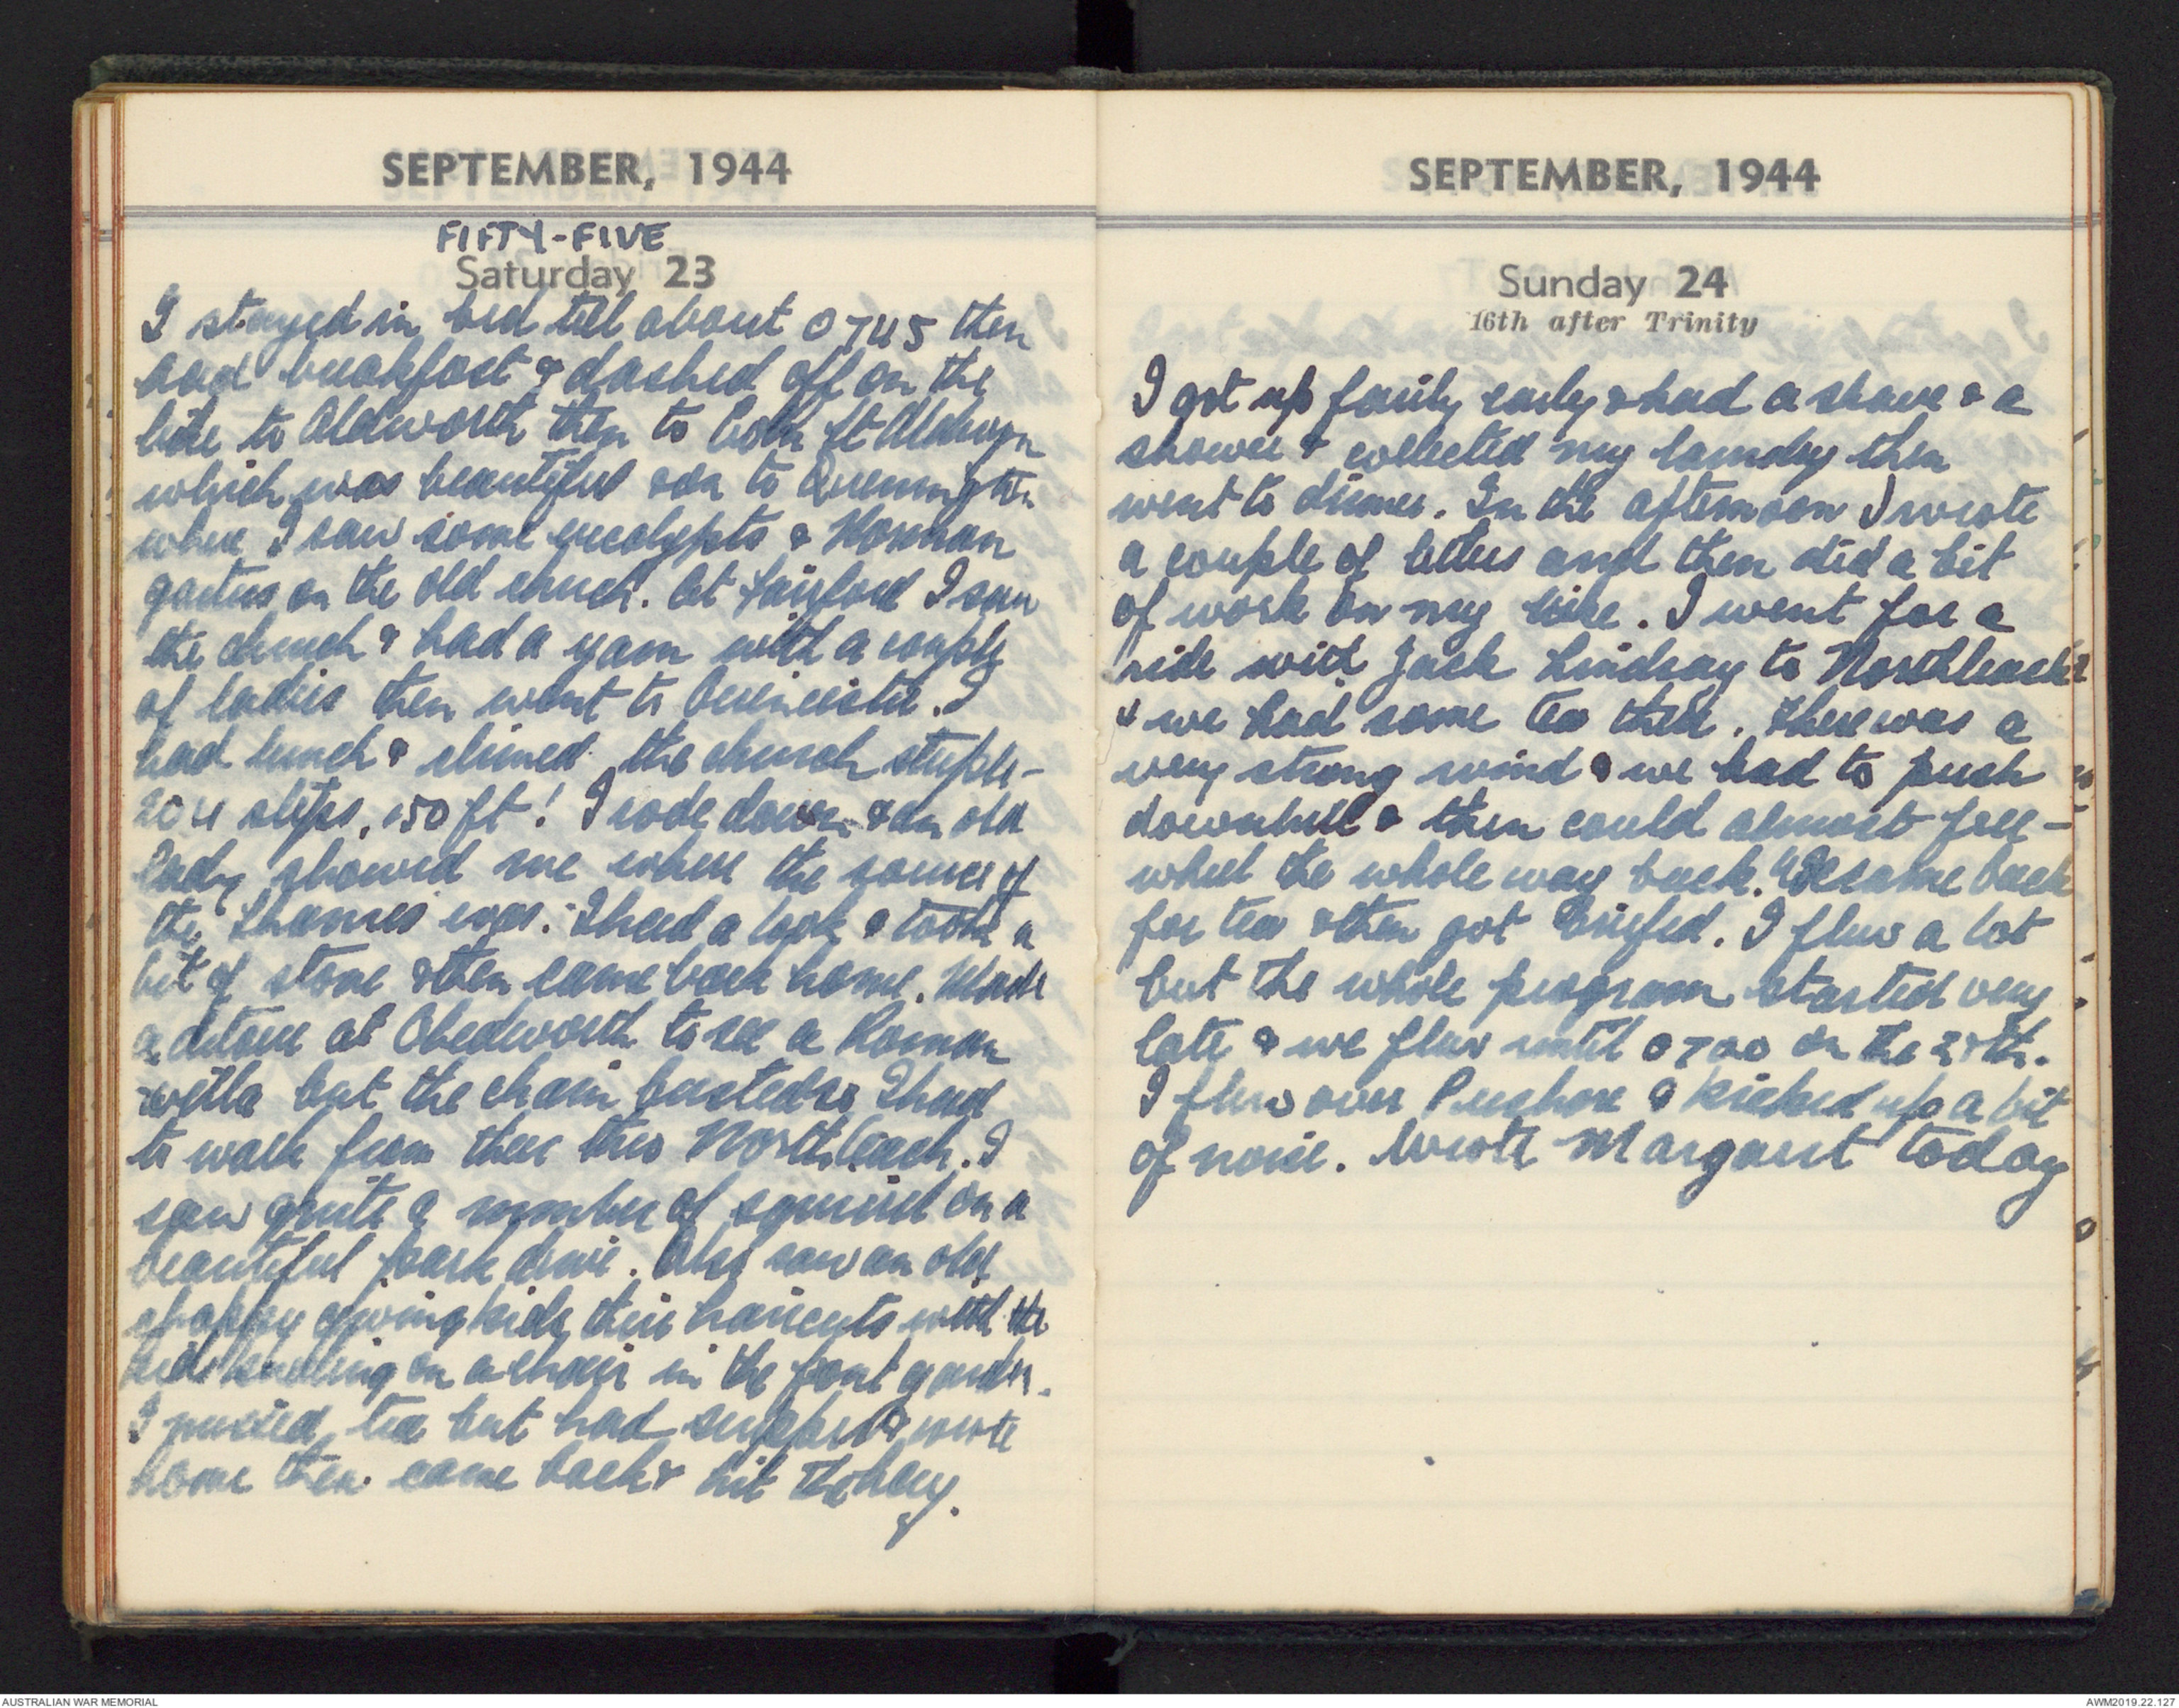 SEPTEMBER, 1944
FIFTY-FIVE
Saturday 23
I stayed in bed till about 0745 then
had breakfast & dashed off on the
bike to Aldworth then to Coln St Aldwyn
which was beautiful & on to Quennington
where I saw some eucalypts & Norman
gates on the old church. At Fairford I saw
the church & had a yarn with a couple
of ladies then went to Cirencister. I
had lunch & climed the church steeple -
204 steps, 150 ft! I rode down & an old
lady showed me where the source of
the Thames was. I had a look & took a
bit of stone & then came back home. Made
a detour at Chedworth to see a Roman
villa but the chain busted & I had
to walk from there thro Northleach. I
saw quite a number of squirrel on a
beautiful park drive. Also saw an old
chappy giving kids their haircuts with the
kids kneeling on a chair in the front garden.
I missed tea but had supper & wrote
home then came back & hit the hay.
SEPTEMBER, 1944
Sunday 24
16th after Trinity
I got up fairly early & had a shave & a
shower & collected my laundry then
went to dinner. In the afternoon I wrote
a couple of letters and then did a bit
of work on my bike. I went for a
ride with Jack Lindsay to Northleach
& we had some tea there. There was a
very strong wind & we had to push
downhill & then could almost free-
wheel the whole way back. We came back
for tea & then got briefed. I flew a lot
but the whole program started very
late & we flew until 0700 on the 25th.
I flew over Pershore & kicked up a bit
of noise. Wrote Margaret today
AUSTRALIAN WAR MEMORIAL
AWM2019.22.127